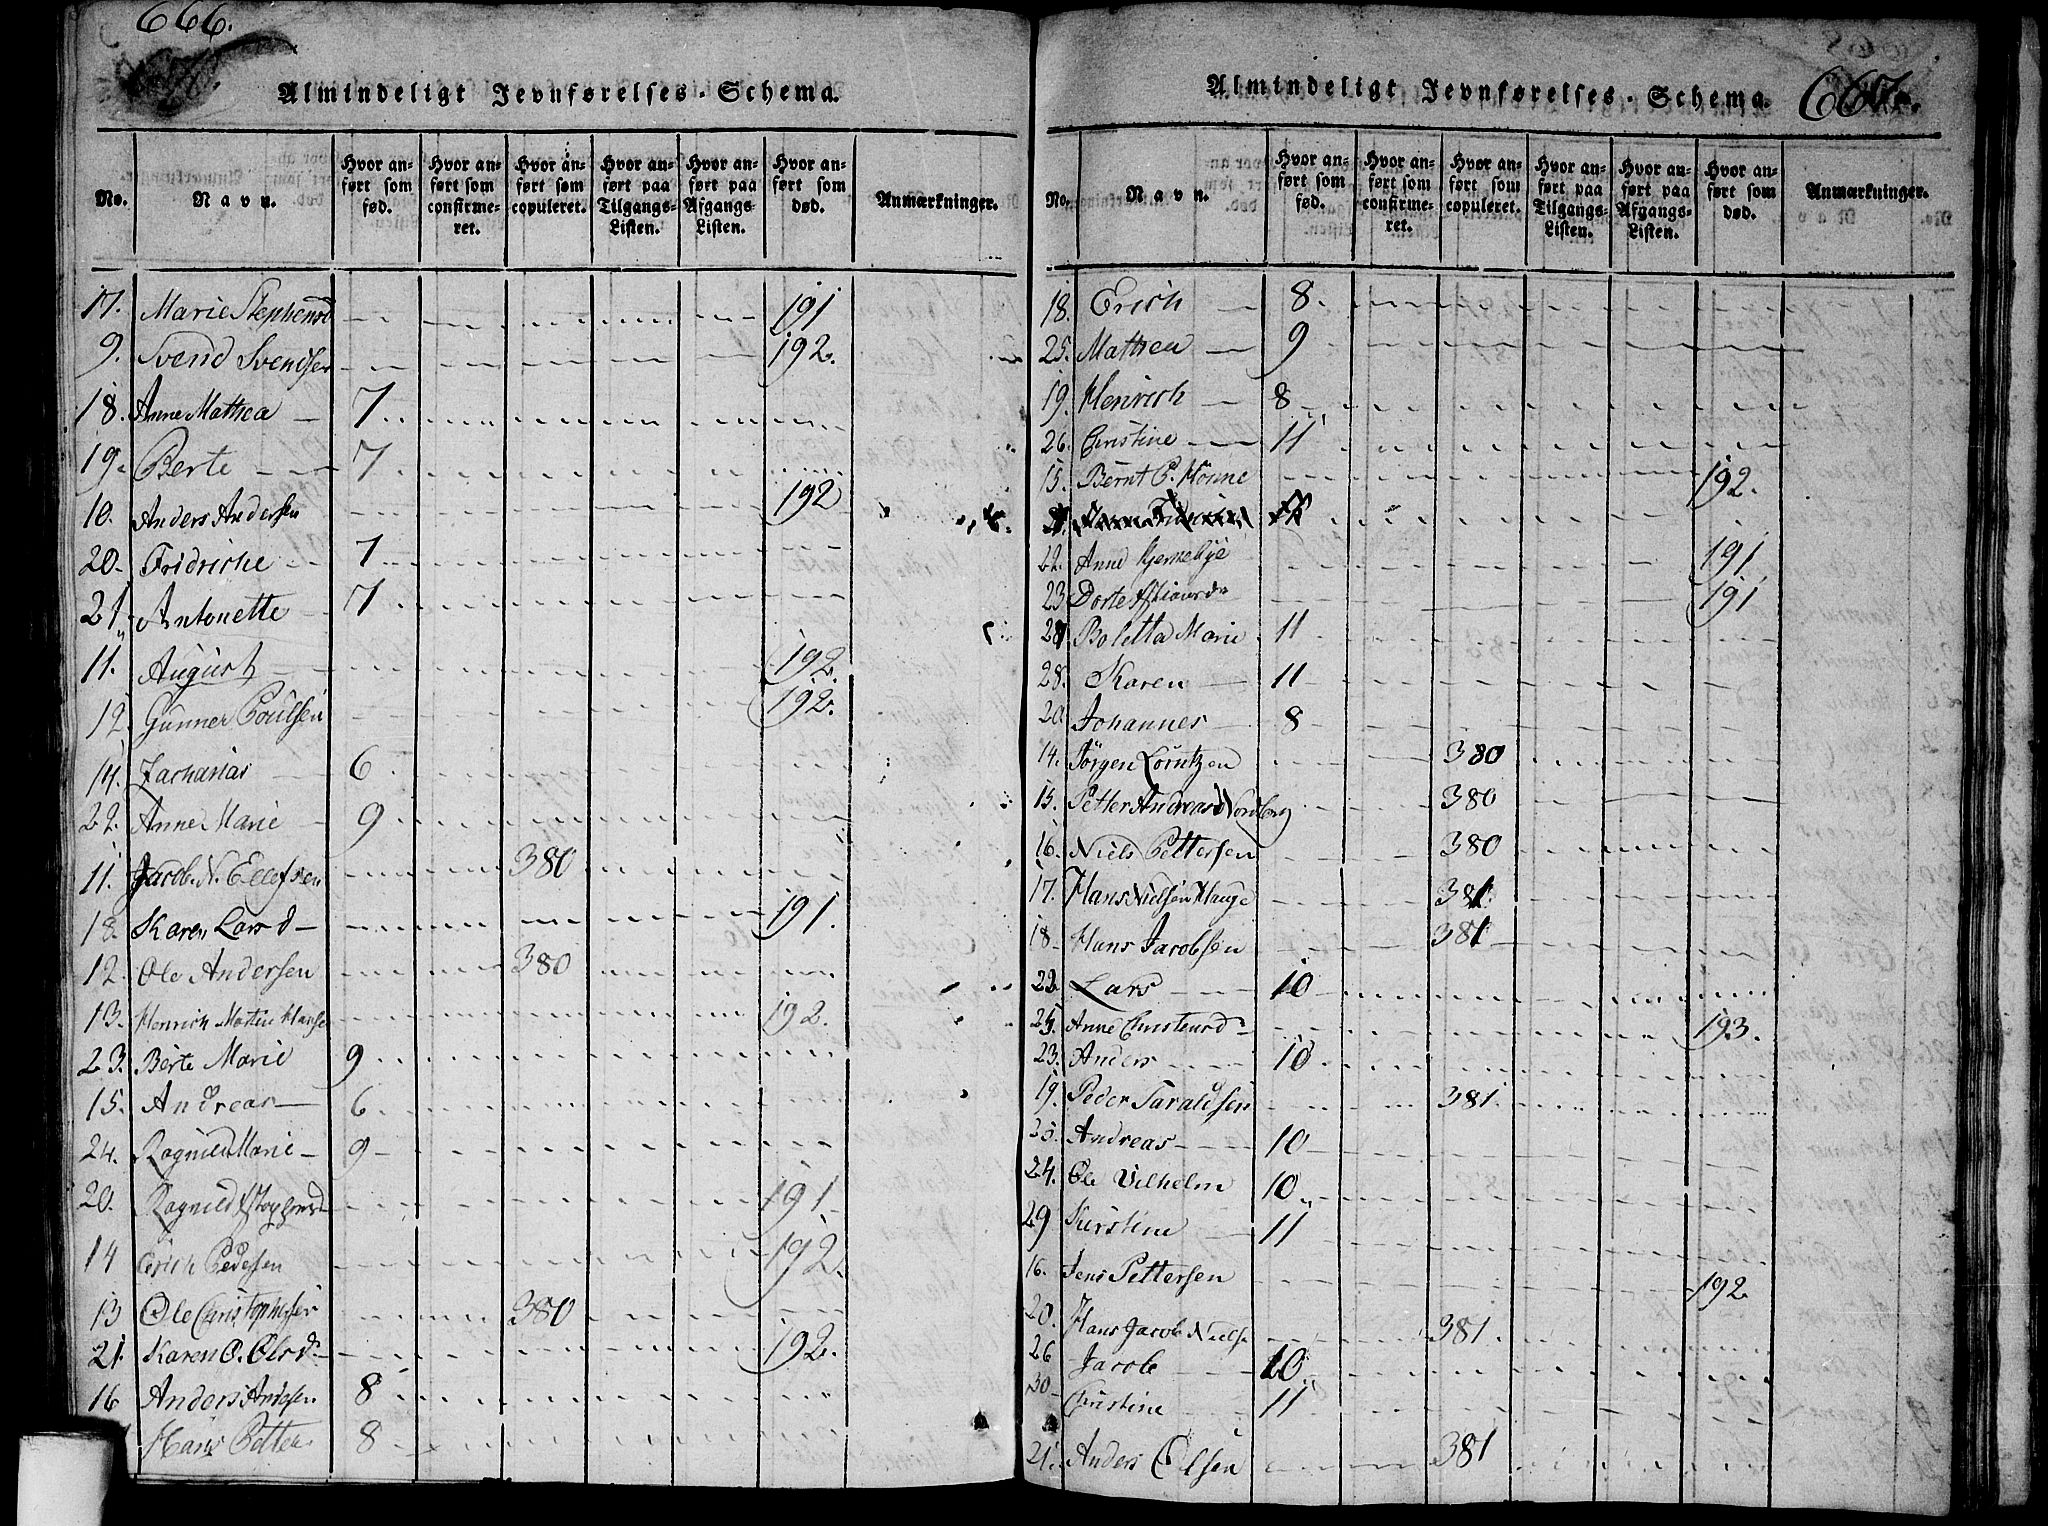 666.
Almindeligt Jevnførelses-Schema.
No. Navn. Hvor anført som fød. Hvor anført som confirmeret. Hvor anført som copuleret. Hvor anført paa Tilgangs-Listen. Hvor anført paa Afgangs-Listen. Hvor anført som død. Anmærkninger.
17. Marie Stephensd 191
9. Svend Svendsen 192.
18. Anne Mathea 7
19. Berte 7
10. Anders Andersen 192
20. Fridriche 7
21. Antonette 7
11. August 192.
12. Gunner Poulsen 192.
14. Zacharias 6
22. Anne Marie 9
11. Jacob N. Ellefsen 380
18. Karen Larsd 191.
12. Ole Andersen 380
13. Henrich Martin Hanse 192.
23. Berte Marie 9
15. Andreas 6
24. Ragnild Marie 9
20. Ragnild 191
14 Erich Pedersen 192.
13 Ole Christophersen 380
21. Karen O. Olsd 192.
16 Anders Andersen 8
Hans Petter 8
Almindeligt Jevnførelses-Schema. 667.
No. Navn. Hvor anført som fød. Hvor anført som confirmeret. Hvor anført som copuleret. Hvor anført paa Tilgangs-Listen. Hvor anført paa Afgangs-Listen. Hvor anført som død. Anmærkninger.
18. Erich 8
25. Mathea 9
19. Henrich 8
26. Christine 11
15. Bernt P. Honne 192.
22. Anne 191
23 Dorte 191
27 Boletta Marie 11
28. Karen 11
20 Johannes 8
14. Jörgen Lorntzen 380
15. Petter Andreas Nordberg 380
16. Niels Pettersen 380
17. Hans Nielsen Hauge 381.
18 Hans Jacobsen 381
22. Lars 10
24. Anne Christensd 193.
23. Anders 10
19. Peder Taraldsen 381
25. Andreas 10
24. Ole Vilhelm 10
29 Kirstine 11
16. Jens Pettersen 192
20. Hans Jacob Nielse 381
26 Jacob 10
30 Christine 11
21. Anders Olsen 381